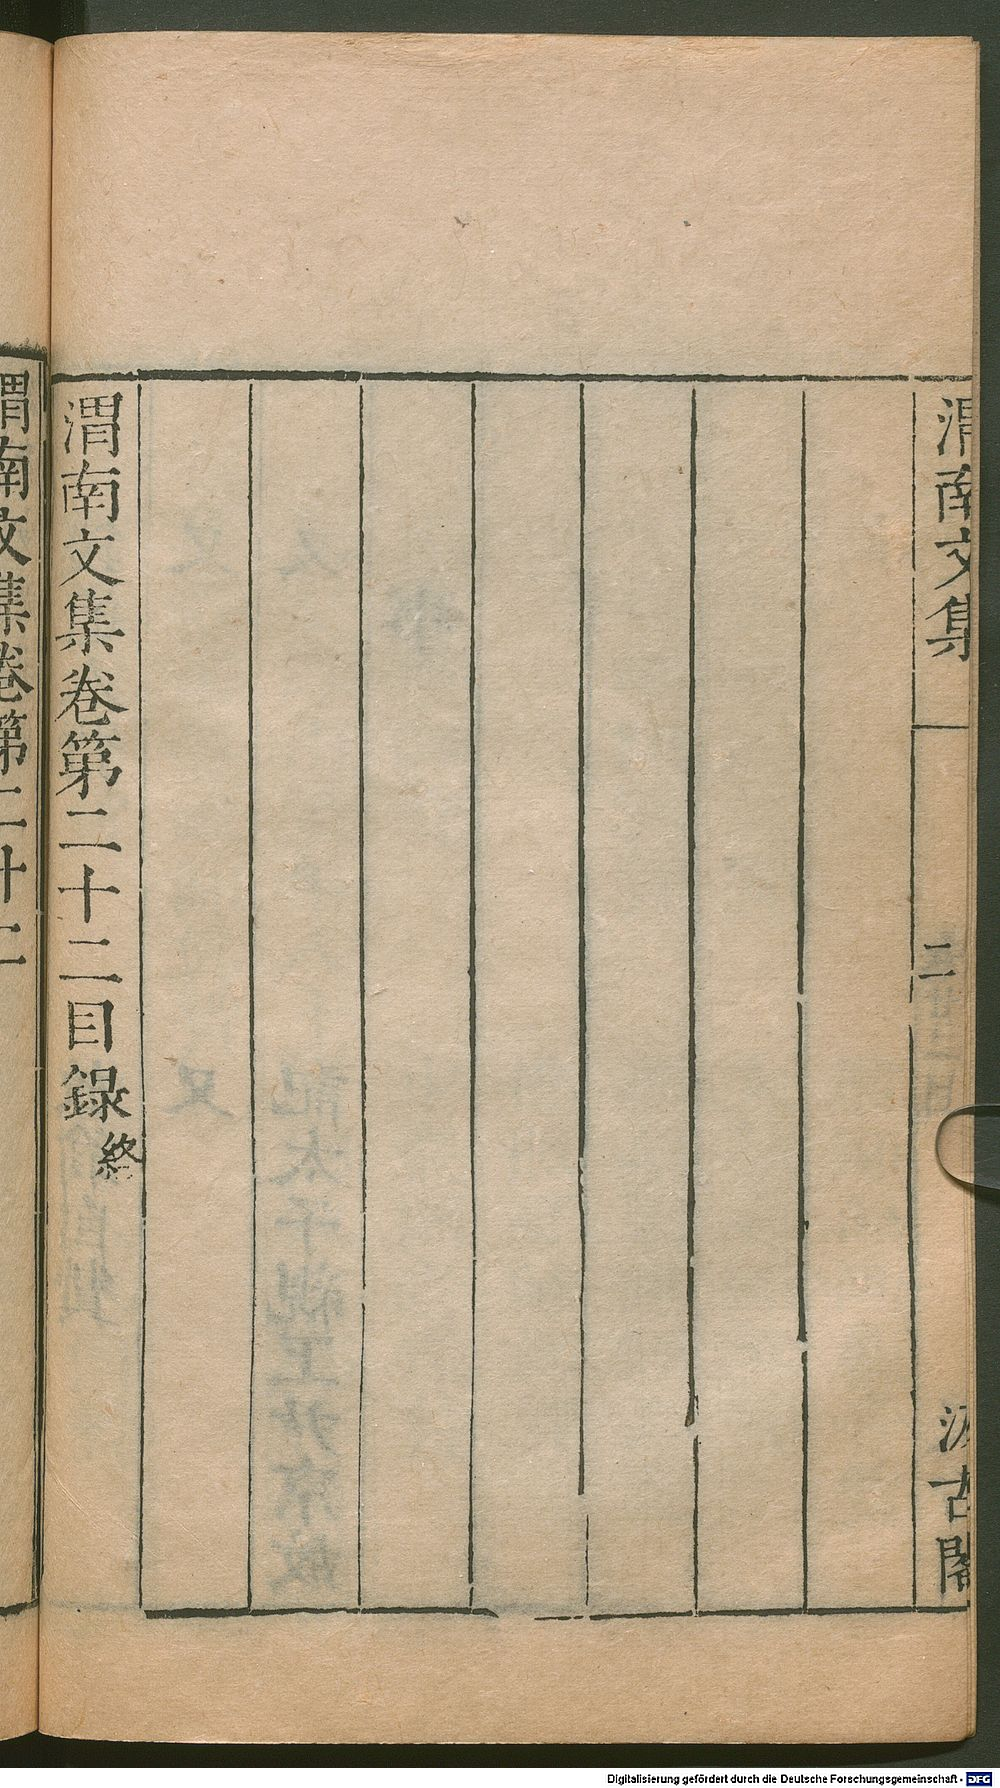 渭南文集
二
汲古閣
渭南文集卷第二十二目録終
渭南文集卷第二十二
Digitalisierung gefördert durch die Deutsche Forschungsgemeinschaft - DFG